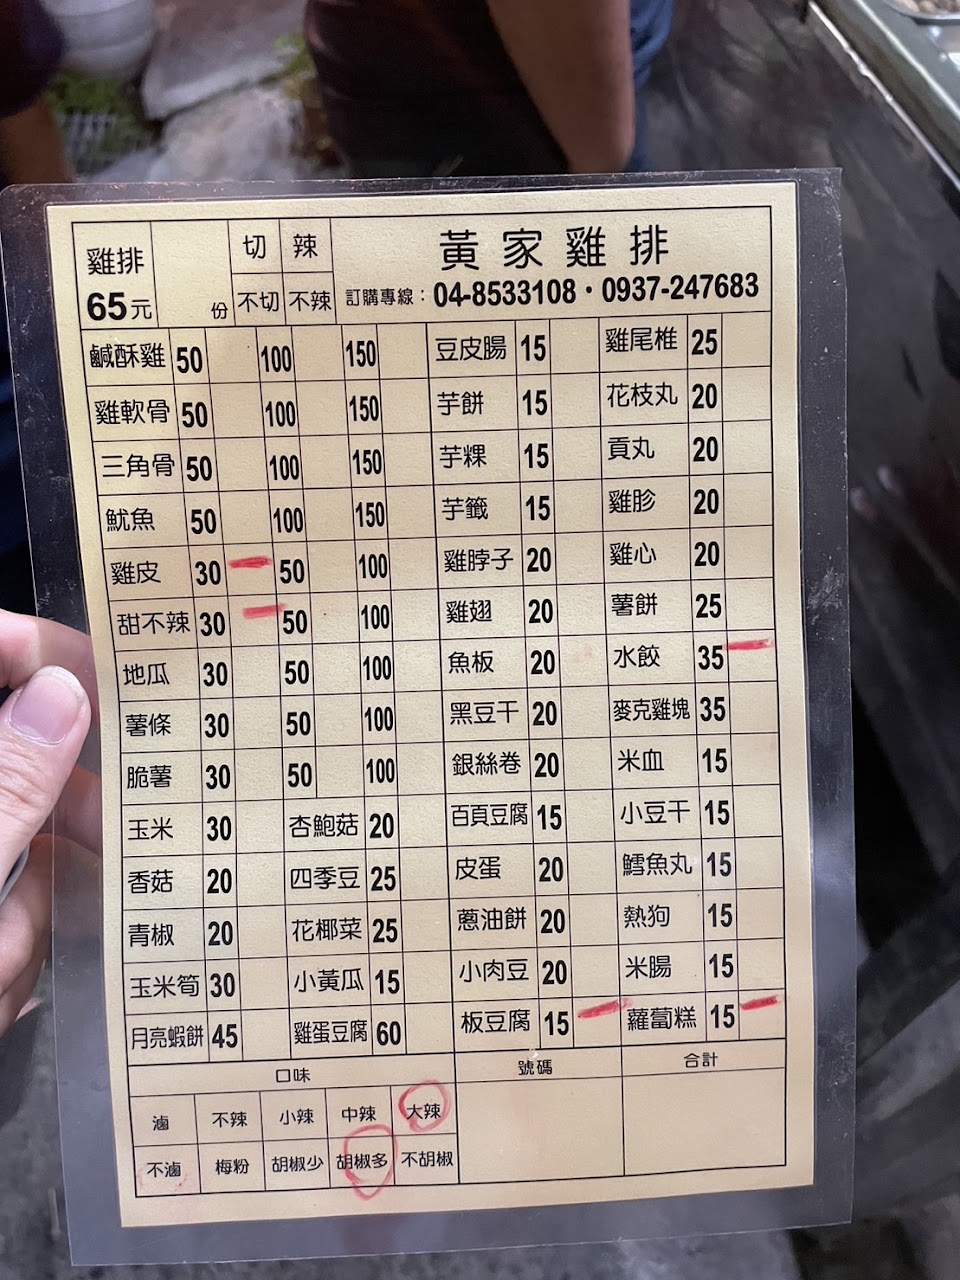 雞排 切 辣 黃家雞排
65元 份 不切 不辣 訂購專線：04-8533108・0937-247683
鹹酥雞 50 100 150 豆皮腸 15 雞尾椎 25
雞軟骨 50 100 150 芋餅 15 花枝丸 20
三角骨 50 100 150 芋粿 15 貢丸 20
魷魚 50 100 150 芋籤 15 雞胗 20
雞皮 30 50 100 雞脖子 20 雞心 20
甜不辣 30 50 100 雞翅 20 薯餅 25
地瓜 30 50 100 魚板 20 水餃 35
薯條 30 50 100 黑豆干 20 麥克雞塊 35
脆薯 30 50 100 銀絲卷 20 米血 15
玉米 30 杏鮑菇 20 百頁豆腐 15 小豆干 15
香菇 20 四季豆 25 皮蛋 20 鱈魚丸 15
青椒 20 花椰菜 25 蔥油餅 20 熱狗 15
玉米筍 30 小黃瓜 15 小肉豆 20 米腸 15
月亮蝦餅 45 雞蛋豆腐 60 板豆腐 15 蘿蔔糕 15
口味 號碼 合計
滷 不辣 小辣 中辣 大辣
不滷 梅粉 胡椒少 胡椒多 不胡椒